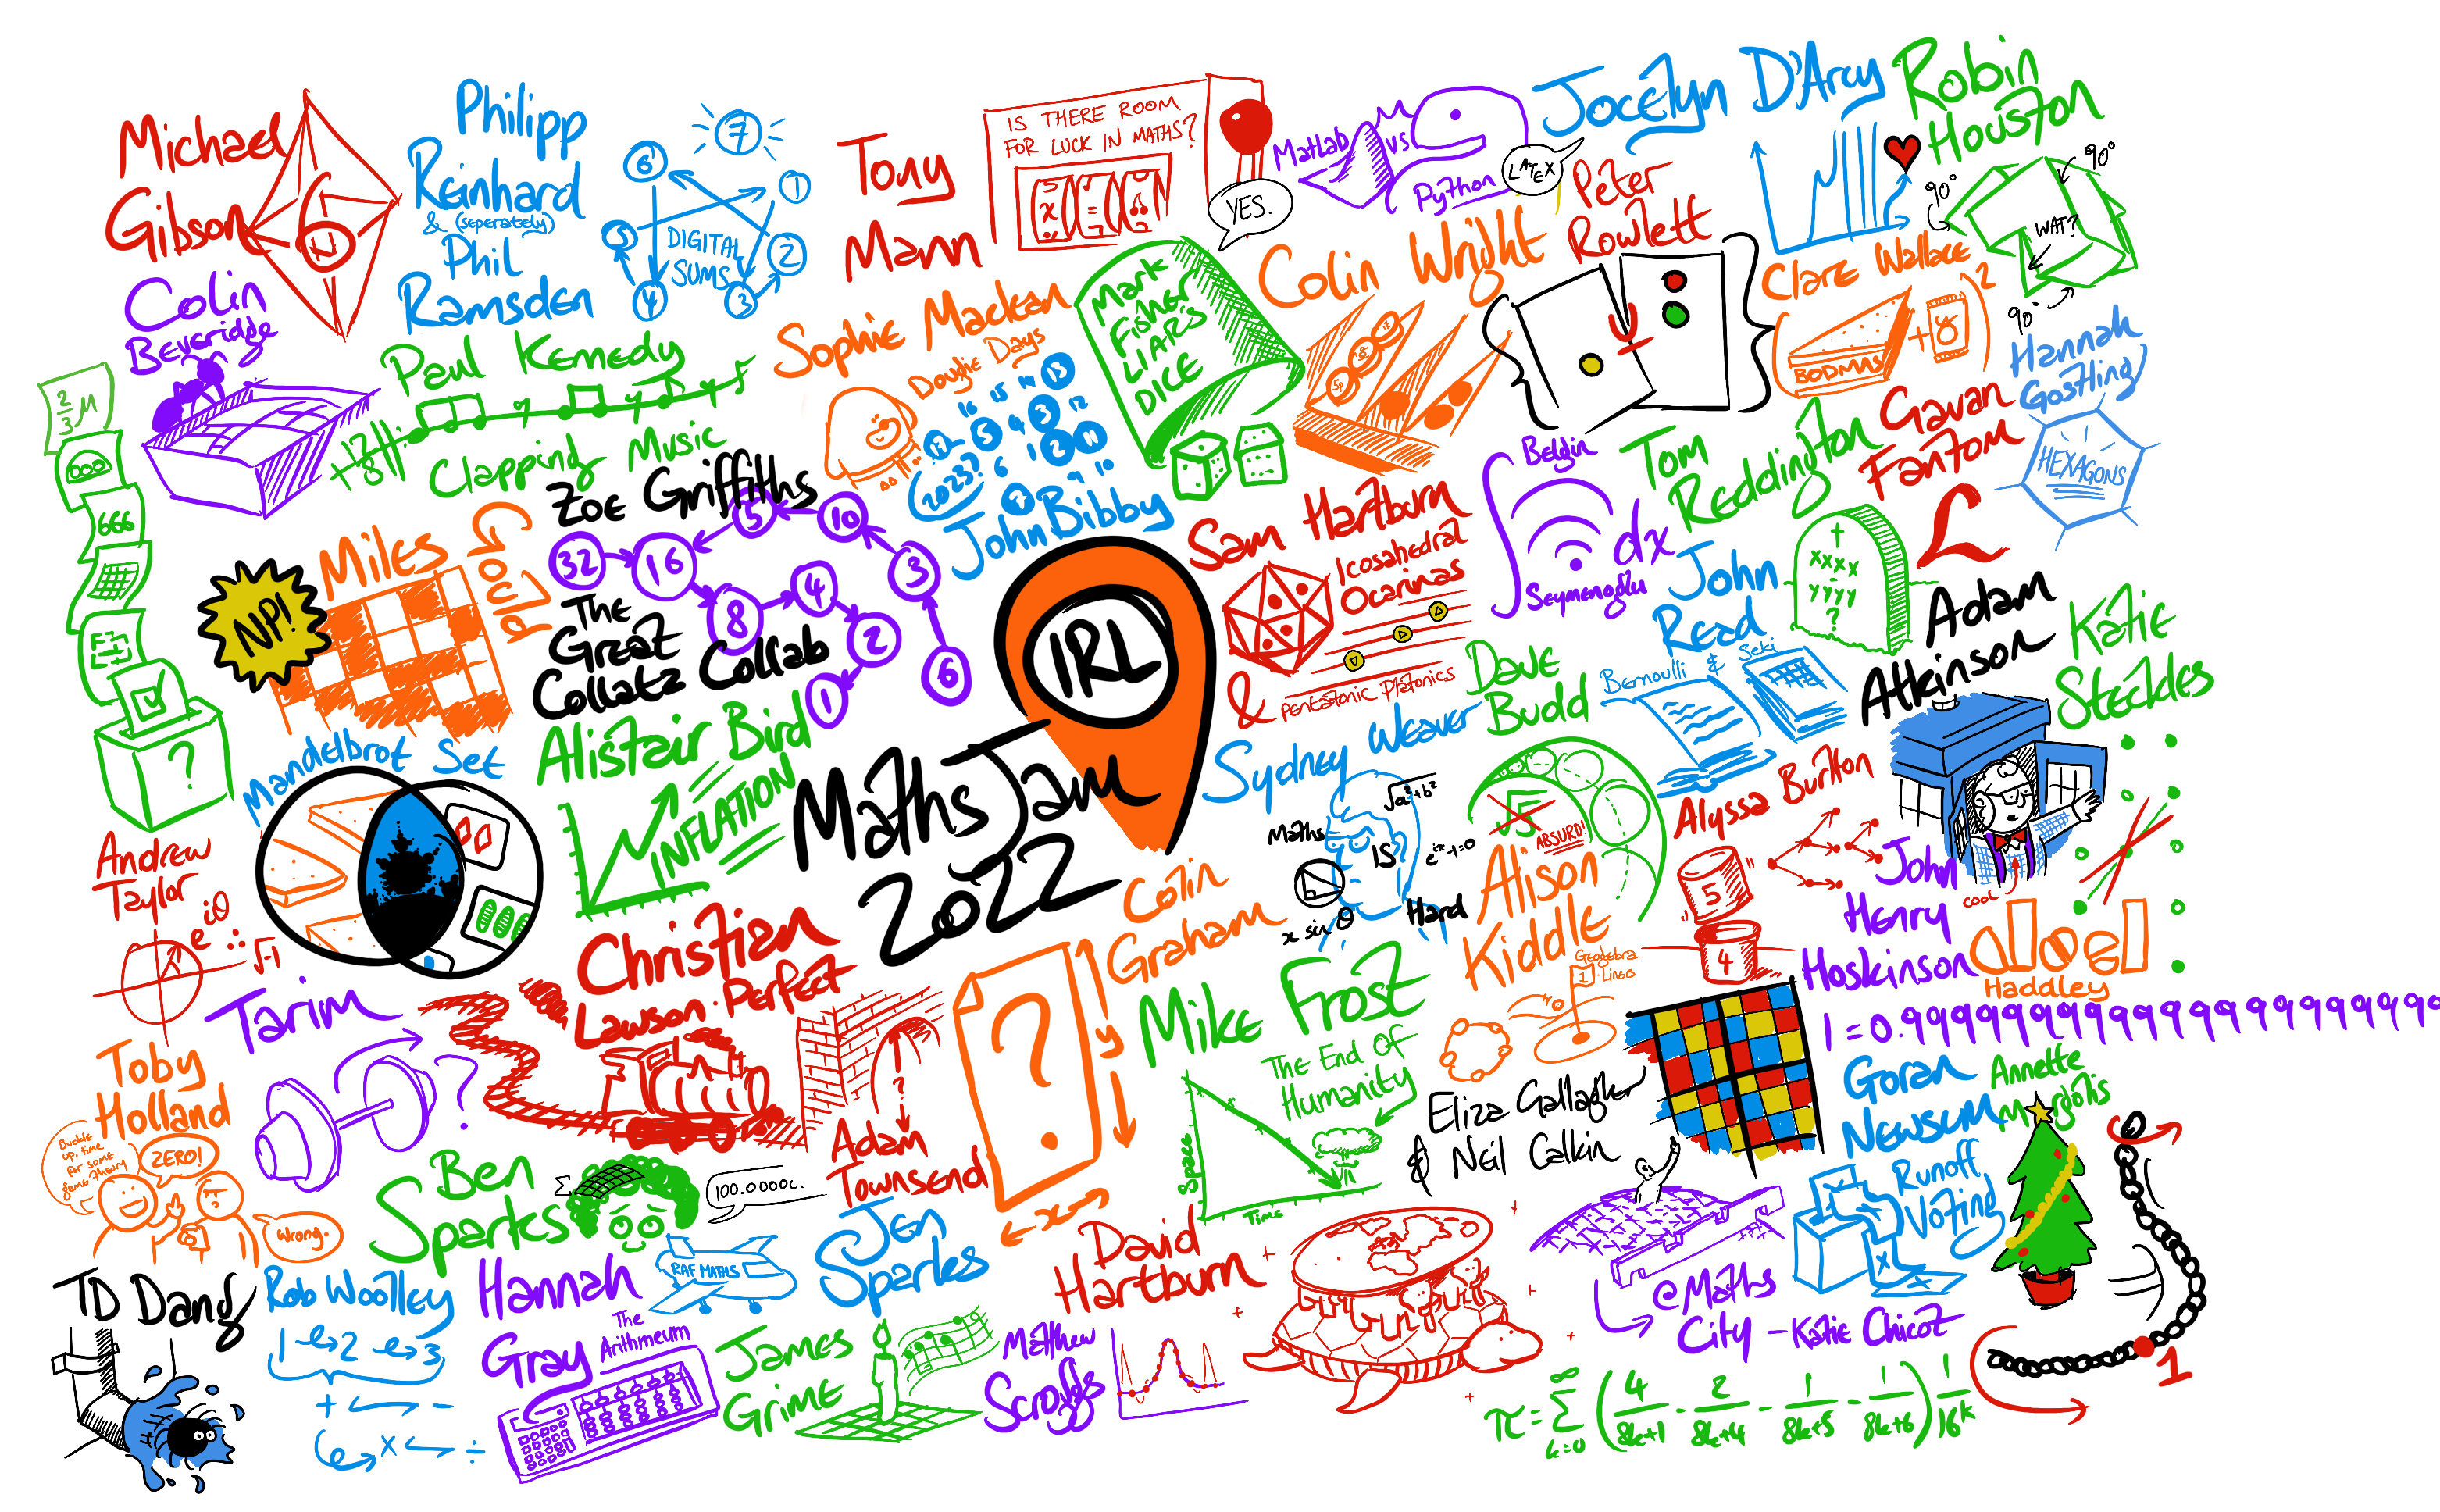 Michael
Gibson
Philipp
Reinhard
& (seperately)
Phil
Ramsden
7
6
1
5
DIGITAL
SUMS
2
4
3
Tony
Mann
IS THERE ROOM
FOR LUCK IN MATHS?
YES.
Matlab
VS
Python
LATEX
Jocelyn D'Arcy
Robin
Houston
90°
90°
WAT?
90°
Peter
Rowlett
Colin Wright
Clare Wallace
BODMAS
+
2
Colin
Beveridge
Paul Kennedy
Clapping Music
12
8
Sophie Maclean
Dougie Days
Mark
Fisher
LIAR'S
DICE
Hannah
Gostling
HEXAGONS
2/3 M
666
?
NP!
Miles
Gould
Zoe Griffiths
32
16
5
10
3
8
4
2
6
1
The
Great
Collatz Collab
2023?
16 15 14 13
5 4 3 12
6 1 2 11
7 9 10
John Bibby
Sam Hartburn
Icosahedral
Ocarinas
& Pentatonic Platonics
Belgin
dx
Seymenoglu
Tom
Reddington
xxxx
yyyy
?
Gavan
Fantom
L
John
Read
Bernoulli & Seki
Adam
Atkinson
Katie
Steckles
IRL
MathsJam
2022
Alistair Bird
INFLATION
Mandelbrot Set
Andrew
Taylor
e^iθ
∴ √-1
Sydney Weaver
√a²+b²
Maths
IS
e^iπ-1=0
x sin θ
Hard
Dave
Budd
√5
ABSURD!
Alyssa Burlton
5
4
John
Henry
Hoskinson
cool
1=0.9999999999999999999999
Haddley
Alison
Kiddle
Geogebra
1-Liners
Colin
Graham
?
y
x
Christian
Lawson-Perfect
Tarim
?
Adam
Townsend
?
Mike Frost
The End Of
Humanity
Space
Time
Eliza Gallagher
& Neil Calkin
Goran
Newsum
Runoff
Voting
Annette
Margolis
1
Toby
Holland
Buckle
up, time
for some
game theory
ZERO!
Wrong.
Ben
Sparks
Σ
100.0000c.
Jen
Sparks
RAF MATHS
David
Hartburn
@Maths
City - Katie Chicot
TD Dang
Rob Woolley
1 2 3
+ -
× ÷
Hannah
Gray
The
Arithmeum
James
Grime
Matthew
Scroggs
π = Σ ∞ k=0 (4/8k+1 - 2/8k+4 - 1/8k+5 - 1/8k+6) 1/16^k